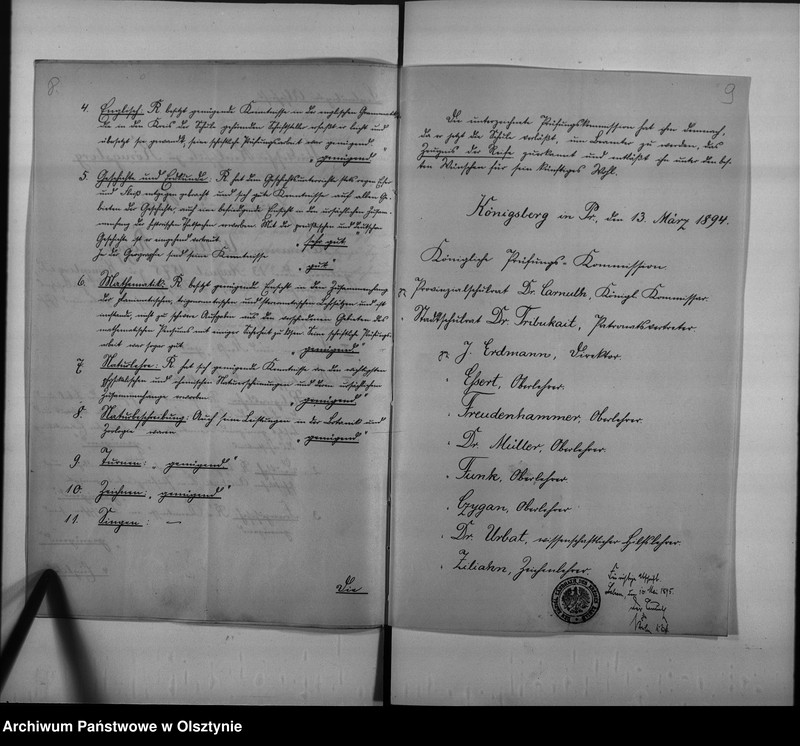 8.
4. Englisch. R. besitzt genügende Kenntnisse in der englischen Grammatik,
die in den Kreis der Schule gehörenden Schriftsteller erfaßt er leicht und
übersetzt sie gewandt, seine schriftliche Prüfungsarbeit war genügend
„genügend“
5. Geschichte und Erdkunde. R. hat dem Geschichtsunterrichte stets regen Eifer
und Fleiß entgegen gebracht und sich gute Kenntnisse auf allen Ge-
bieten der Geschichte, auch eine befriedigende Einsicht in den ursächlichen Zusam-
menhang der historischen Thatsachen erworben. Mit der preußischen und deutschen
Geschichte ist er eingehend vertraut. „sehr gut“
In der Geographie sind seine Kenntnisse
„gut“
6. Mathematik: R. besitzt genügende Einsicht in den Zusammenhang
der planimetrischen, trigonometrischen und stereometrischen Lehrsätze und ist
imstande, nicht zu schwere Aufgaben aus den verschiedenen Gebieten des
mathematischen Pensums mit einiger Sicherheit zu lösen. Seine schriftliche Prüfungs-
arbeit war sogar gut „genügend“
7. Naturlehre: R. hat sich genügende Kenntnisse von den wichtigsten
physikalischen und chemischen Naturerscheinungen und dem ursächlichen
Zusammenhange erworben „genügend“
8. Naturbeschreibung: Auch seine Leistungen in der Botanik und
Zoologie waren „genügend“
9. Turnen: „genügend“
10. Zeichnen: „genügend“
11. Singen: —
Die
9
Die unterzeichnete Prüfungskommission hat ihm demnach,
da er jetzt die Schule verläßt, um Beamter zu werden, das
Zeugnis der Reife zuerkannt und entläßt ihn unter den be-
sten Wünschen für sein künftiges Wohl.
Königsberg in Pr., den 13. März 1894.
Königliche Prüfungs-Kommission.
gz. Provinzialschulrat Dr. Carnuth, Königl. Kommissar.
„ Stadtschulrat Dr. Tribukait, Patronatsvertreter.
gz. J. Erdmann, Direktor.
„ Essert, Oberlehrer.
„ Freudenhammer, Oberlehrer.
„ Dr. Müller, Oberlehrer.
„ Funk, Oberlehrer
„ Czygan, Oberlehrer
„ Dr. Urbat, wissenschaftlicher Hilfslehrer.
„ Ziliahn, Zeichenlehrer.
1895.
Archiwum Państwowe w Olsztynie